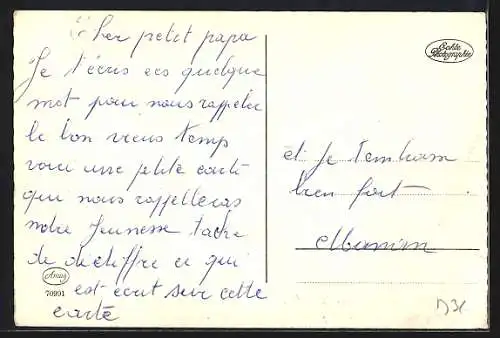 Cher petit papa
Je t'écris ces quelque
mot pour nous rappeler
le bon vieux temp
voici une petite carte
que nous rappelleras
notre jeunesse tache
de dechiffre ce qui
est ecrit sur cette
carte
et je t'embrasse
bien fort
Echte
Photographie
70991